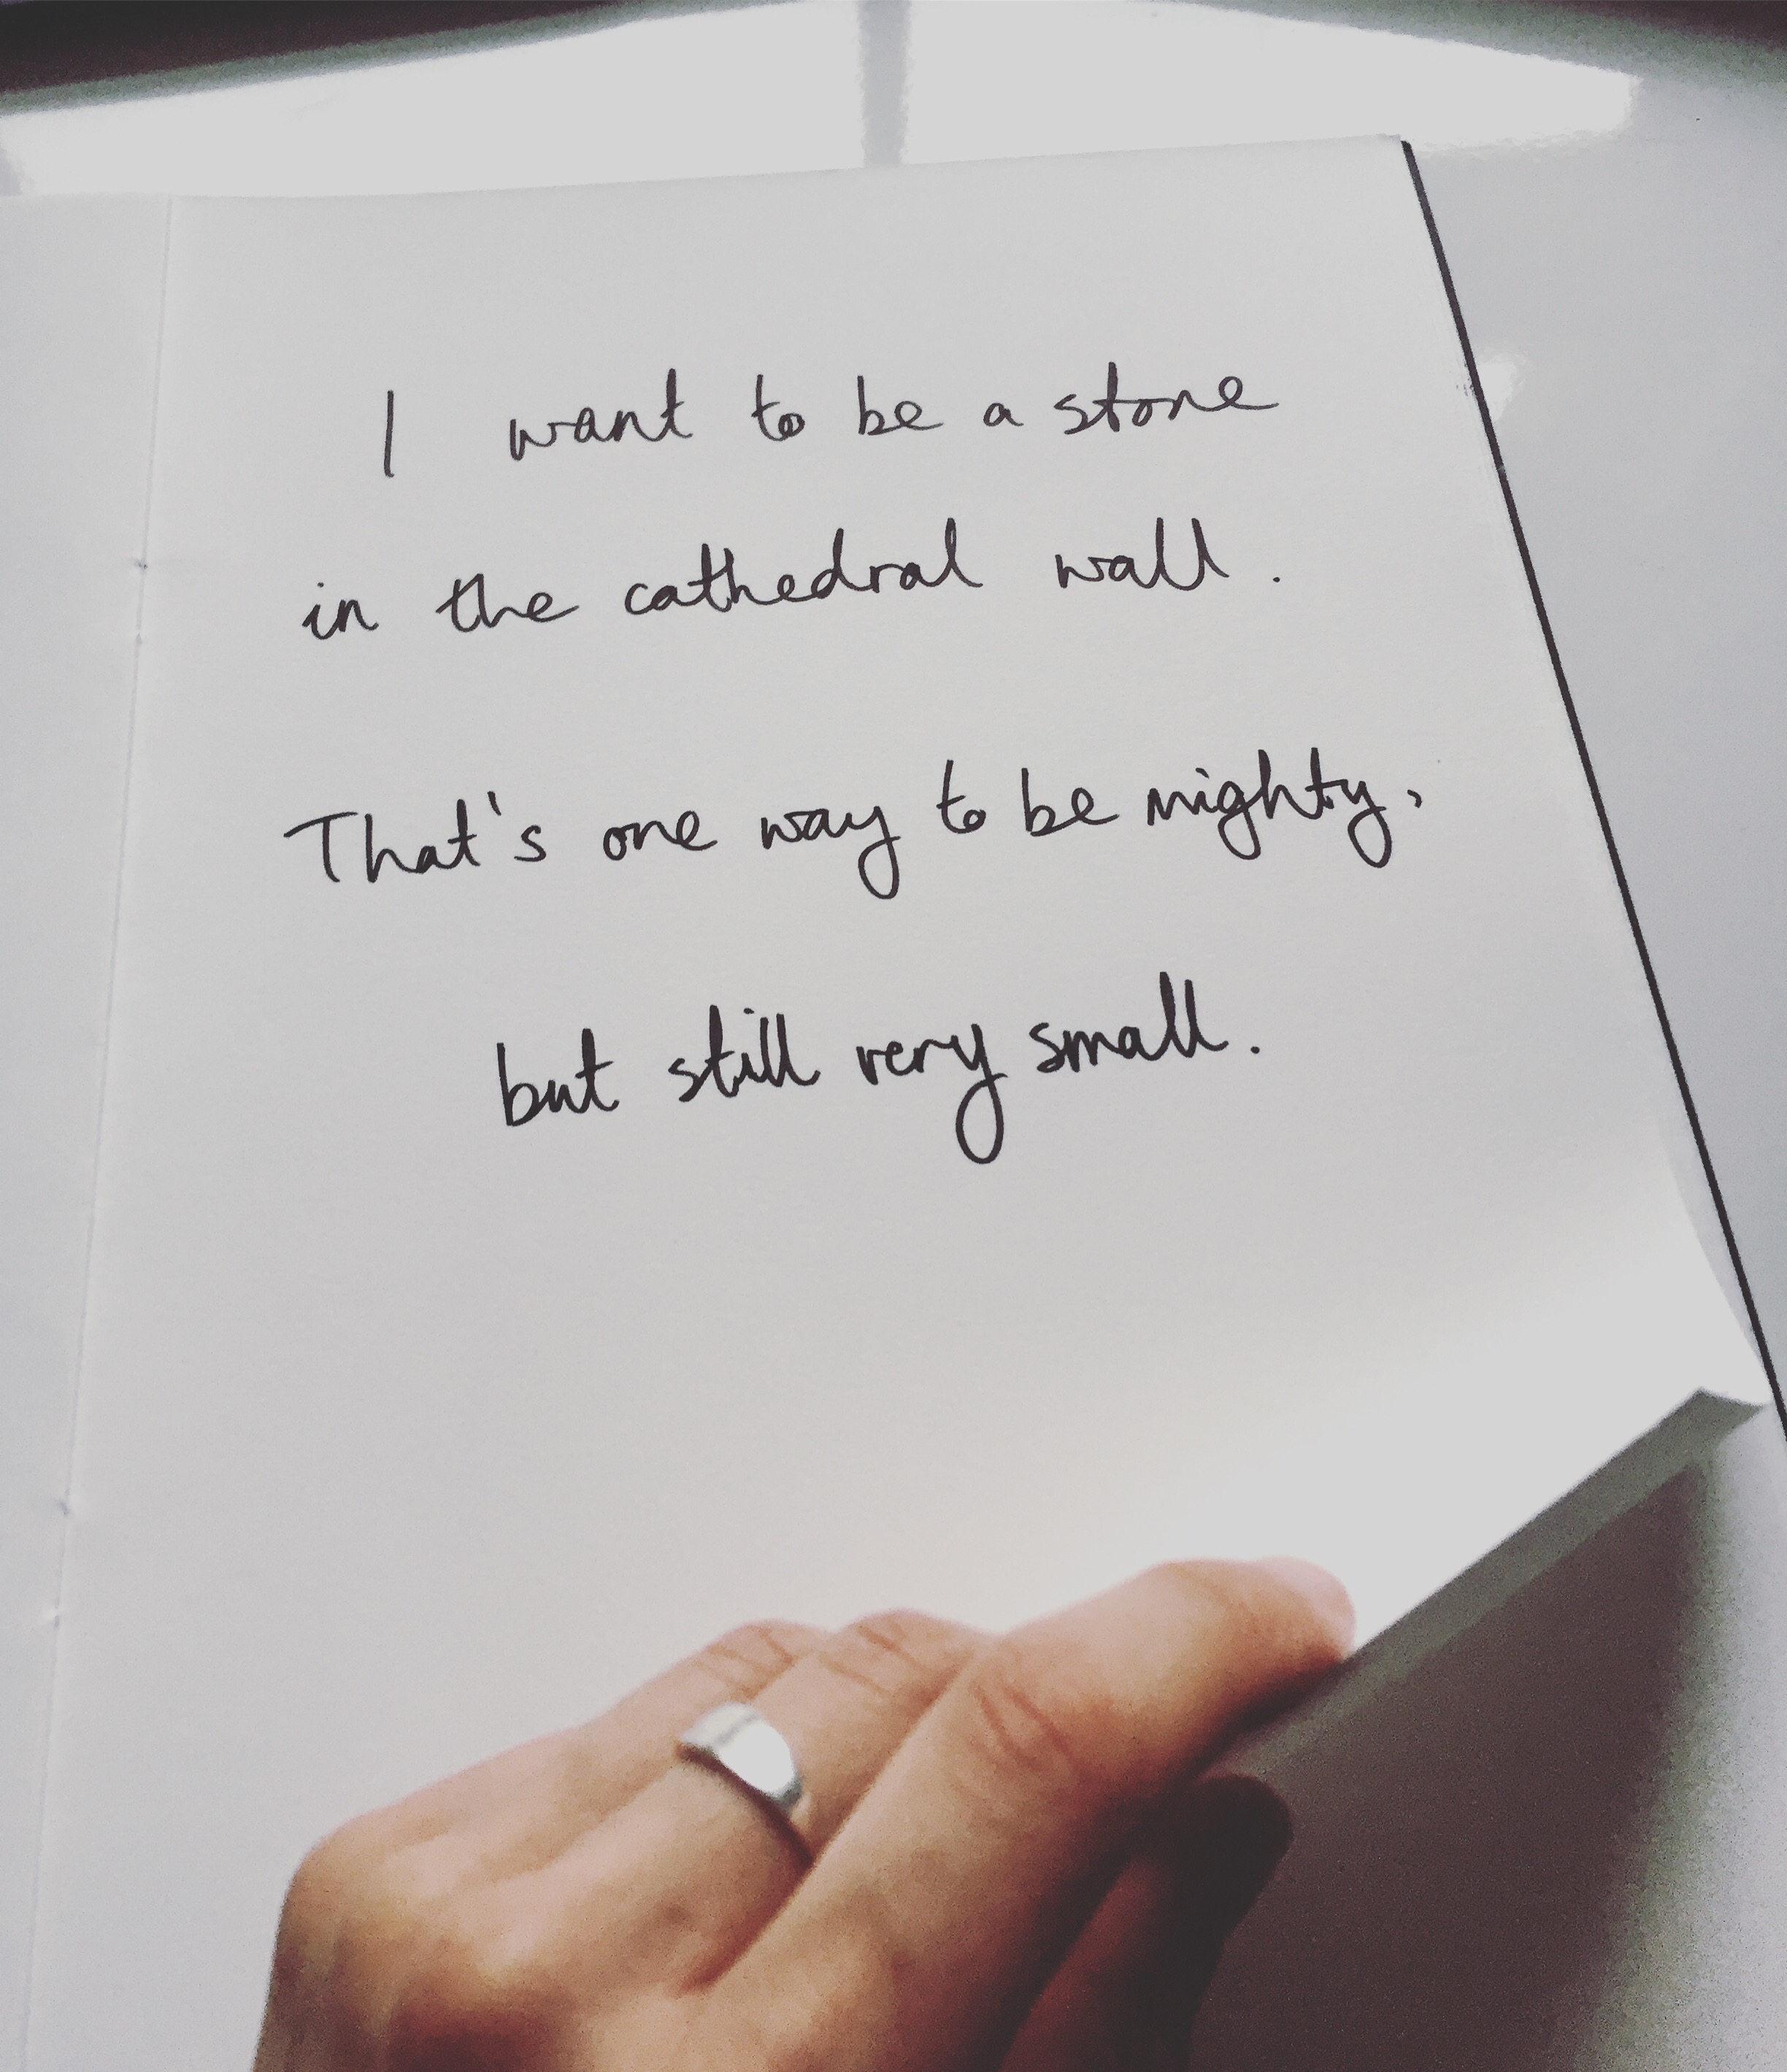 I want to be a stone
in the cathedral wall.
That's one way to be mighty,
but still very small.